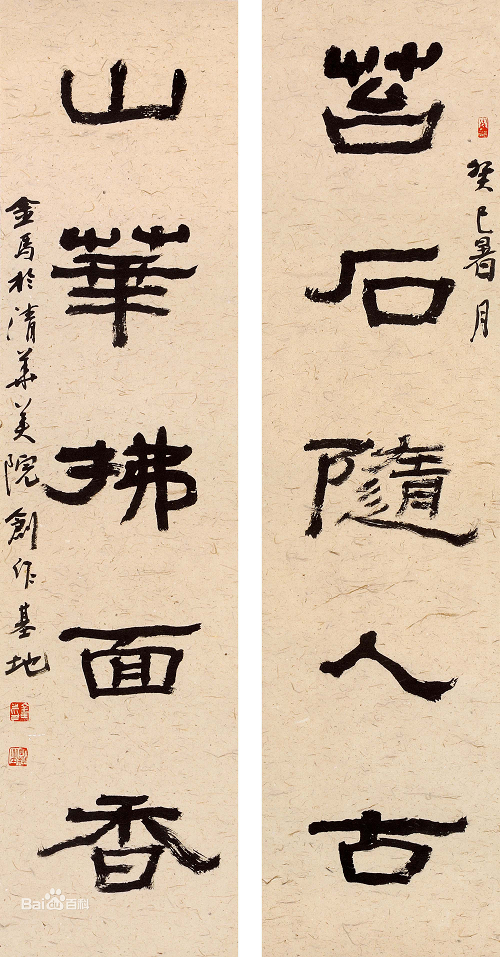 癸巳暑月
苔石隨人古
山華拂面香
金馬於清華美院創作基地
Bai百科